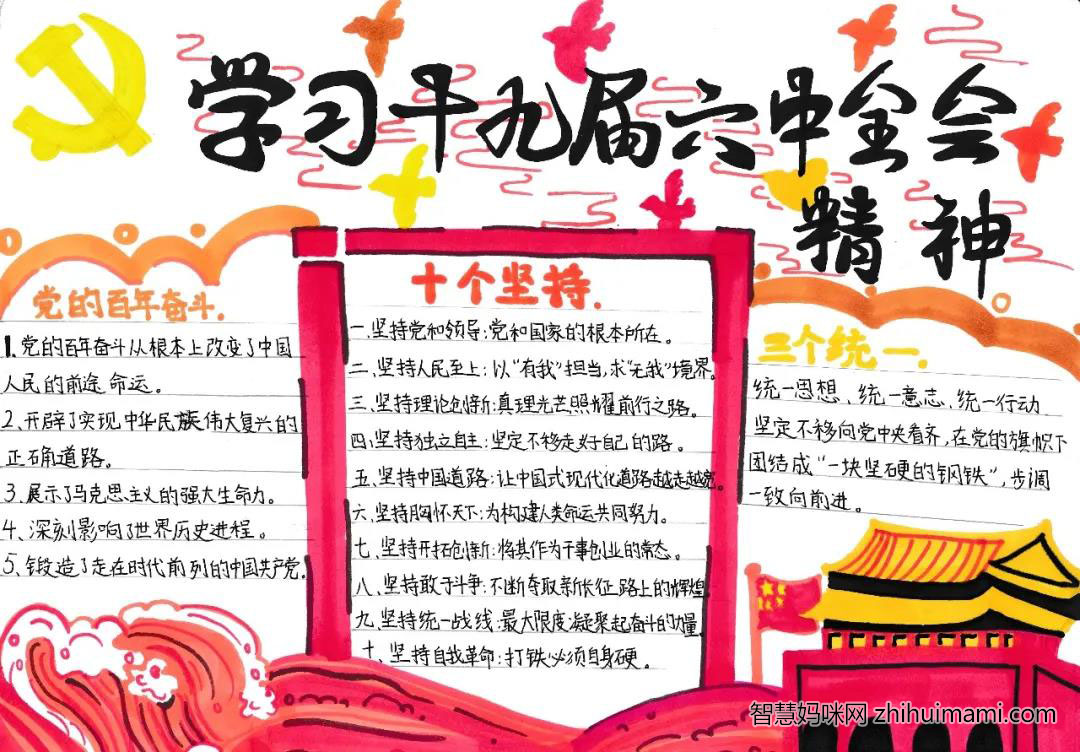 学习十九届六中全会
精神
党的百年奋斗.
1.党的百年奋斗从根本上改变了中国
人民的前途命运。
2.开辟了实现中华民族伟大复兴的
正确道路。
3.展示了马克思主义的强大生命力。
4、深刻影响了世界历史进程。
5、锻造了走在时代前列的中国共产党.
十个坚持.
一.坚持党和领导:党和国家的根本所在。
二、坚持人民至上:以“有我”担当,求“无我”境界。
三、坚持理论创新:真理光芒照耀前行之路。
四、坚持独立自主:坚定不移走好自己的路。
五、坚持中国道路:让中国式现代化道路越走越宽。
六、坚持胸怀天下:为构建人类命运共同努力。
七、坚持开拓创新:将其作为干事创业的常态。
八、坚持敢于斗争:不断夺取新长征路上的辉煌
九、坚持统一战线:最大限度凝聚起奋斗的力量.
十、坚持自我革命:打铁必须自身硬。
三个统一.
统一思想、统一意志、统一行动.
坚定不移向党中央看齐,在党的旗帜下
团结成“一块坚硬的钢铁”,步调
一致向前进。
智慧妈咪网 zhihuimami.com